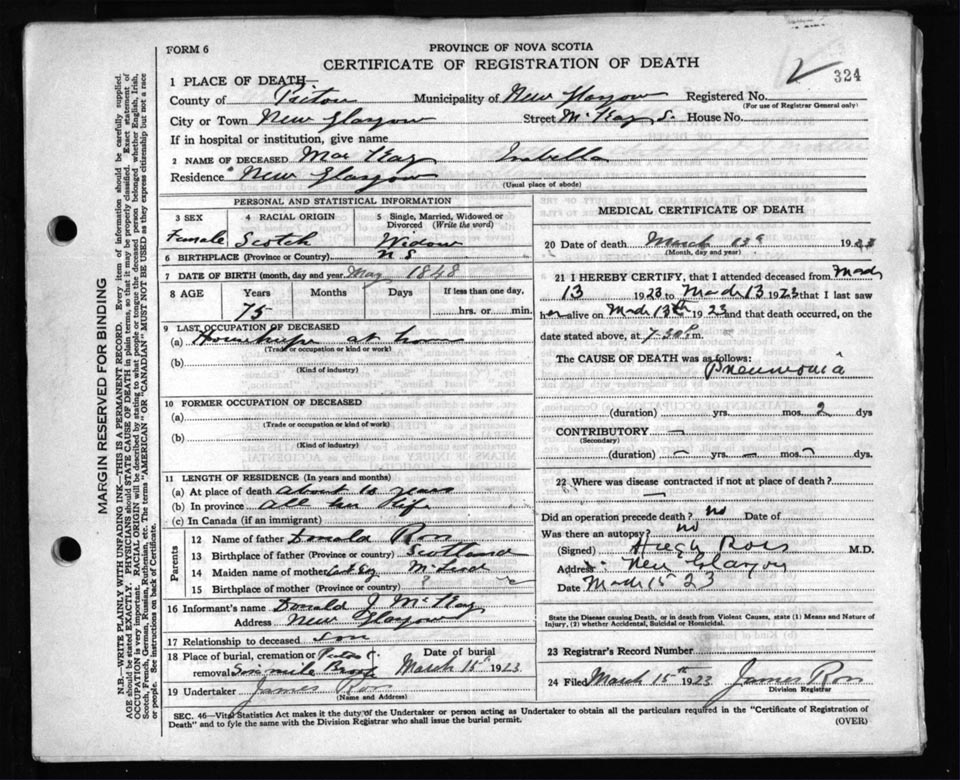 FORM 6
PROVINCE OF NOVA SCOTIA
CERTIFICATE OF REGISTRATION OF DEATH
324
1 PLACE OF DEATH—
County of Pictou Municipality of New Glasgow Registered No.
(For use of Registrar General only)
City or Town New Glasgow Street McKay S. House No.
If in hospital or institution, give name
2 NAME OF DECEASED MacKay Isabella
Residence New Glasgow
(Usual place of abode)
PERSONAL AND STATISTICAL INFORMATION
3 SEX 4 RACIAL ORIGIN 5 Single, Married, Widowed or Divorced (Write the word)
Female Scotch Widow
6 BIRTHPLACE (Province or Country) N S
7 DATE OF BIRTH (month, day and year) May 1848
8 AGE Years Months Days If less than one day,
75 hrs. or min.
9 LAST OCCUPATION OF DECEASED
(a) at home
(Trade or occupation or kind of work)
(b)
(Kind of industry)
10 FORMER OCCUPATION OF DECEASED
(a)
(Trade or occupation or kind of work)
(b)
(Kind of industry)
11 LENGTH OF RESIDENCE (In years and months)
(a) At place of death about 10 years
(b) In province all her life
(c) In Canada (if an immigrant)
Parents
12 Name of father Donald Ross
13 Birthplace of father (Province or country) Scotland
14 Maiden name of mother McLeod
15 Birthplace of mother (Province or country) ?
16 Informant's name Donald J McKay
Address New Glasgow
17 Relationship to deceased son
18 Place of burial, cremation or removal Date of burial
March 15th 1923
19 Undertaker James Ross
(Name and Address)
MEDICAL CERTIFICATE OF DEATH
20 Date of death March 13th 1923
(Month, day and year)
21 I HEREBY CERTIFY, that I attended deceased from March
13 1923 to March 13 1923 that I last saw
her alive on March 13th 1923 and that death occurred, on the
date stated above, at 7.30 P m.
The CAUSE OF DEATH was as follows:
Pneumonia
(duration) yrs. mos. 2 dys
CONTRIBUTORY —
(Secondary)
(duration) – yrs. – mos. – dys
22 Where was disease contracted if not at place of death?
—
Did an operation precede death? no Date of
Was there an autopsy? no
(Signed) Hugh Ross M.D.
Address New Glasgow
Date March 15 23
State the Disease causing Death, or in death from Violent Causes, state (1) Means and Nature of Injury, (2) whether Accidental, Suicidal or Homicidal.
23 Registrar's Record Number
24 Filed March 15th 1923 James Ross
Division Registrar
SEC. 46—Vital Statistics Act makes it the duty of the Undertaker or person acting as Undertaker to obtain all the particulars required in the "Certificate of Registration of
Death" and to fyle the same with the Division Registrar who shall issue the burial permit.
(OVER)
MARGIN RESERVED FOR BINDING
N.B.—WRITE PLAINLY WITH UNFADING INK—THIS IS A PERMANENT RECORD. Every item of information should be carefully supplied.
AGE should be stated EXACTLY. PHYSICIANS should STATE CAUSE OF DEATH in plain terms, so that it may be properly classified. Exact statement of
OCCUPATION is very important. RACIAL ORIGIN will be described by stating to what people or tongue the deceased person belonged whether English, Irish,
Scotch, French, German, Russian, Ruthenian, etc. The terms "AMERICAN" OR "CANADIAN" MUST NOT BE USED as they express citizenship but not a race
or people. See instructions on back of Certificate.